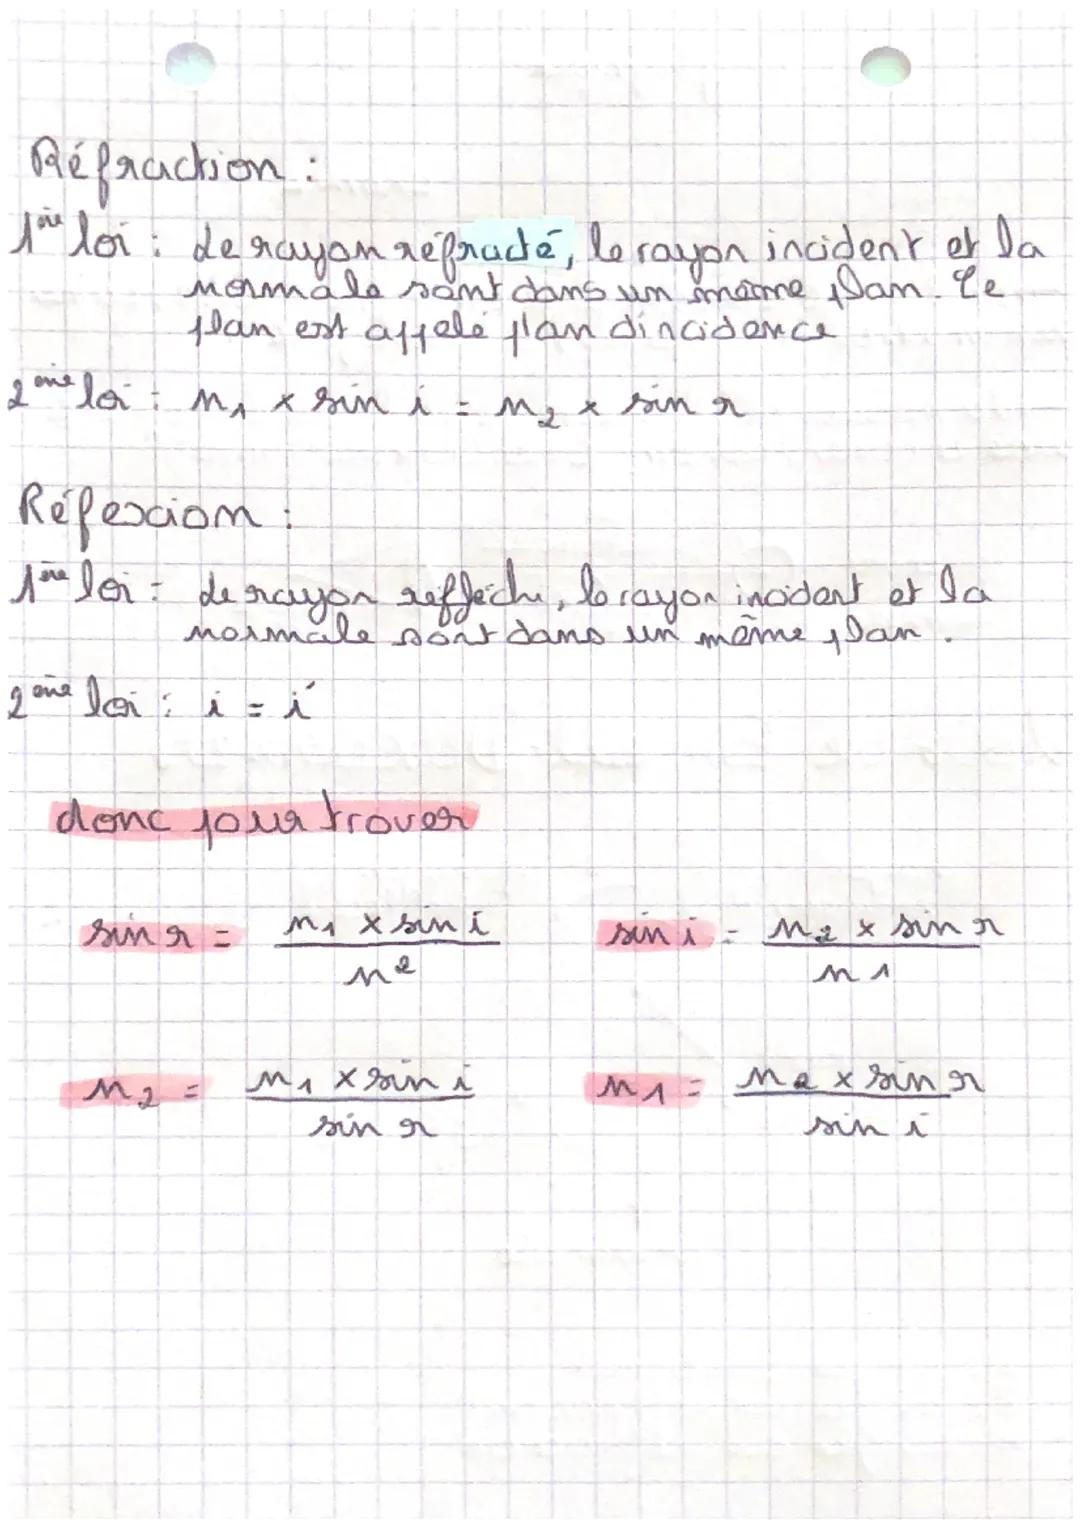 Réfraction :
1ère loi : Le rayon réfracté, le rayon incident et la
normale sont dans un même plan. Ce
plan est appelé plan d'incidence
2ème loi : n₁ × sin i = n₂ × sin r
Réfexion :
1ère loi : Le rayon réfléchi, le rayon incident et la
normale sont dans un même plan.
2ème loi : i = i'
donc pour trover
sin r = n₁ × sin i / n² sin i = n₂ × sin r / n1
n₂ = n₁ × sin i / sin r n1 = n₂ × sin r / sin i